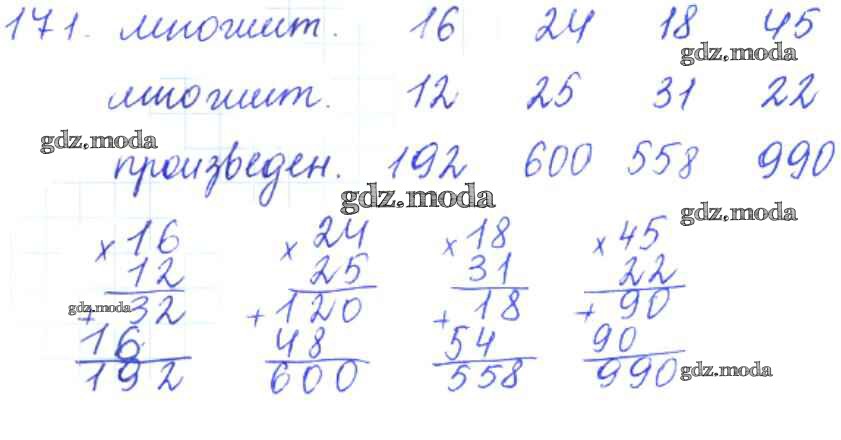 171. множит. 16 24 18 45
gdz.moda
множит. 12 25 31 22
gdz.moda
произведен. 192 600 558 990
gdz.moda
gdz.moda
× 16 × 24 × 18 × 45
12 25 31 22
gdz.moda
+ 32 + 120 + 18 + 90
16 48 54 90
192 600 558 990
gdz.moda